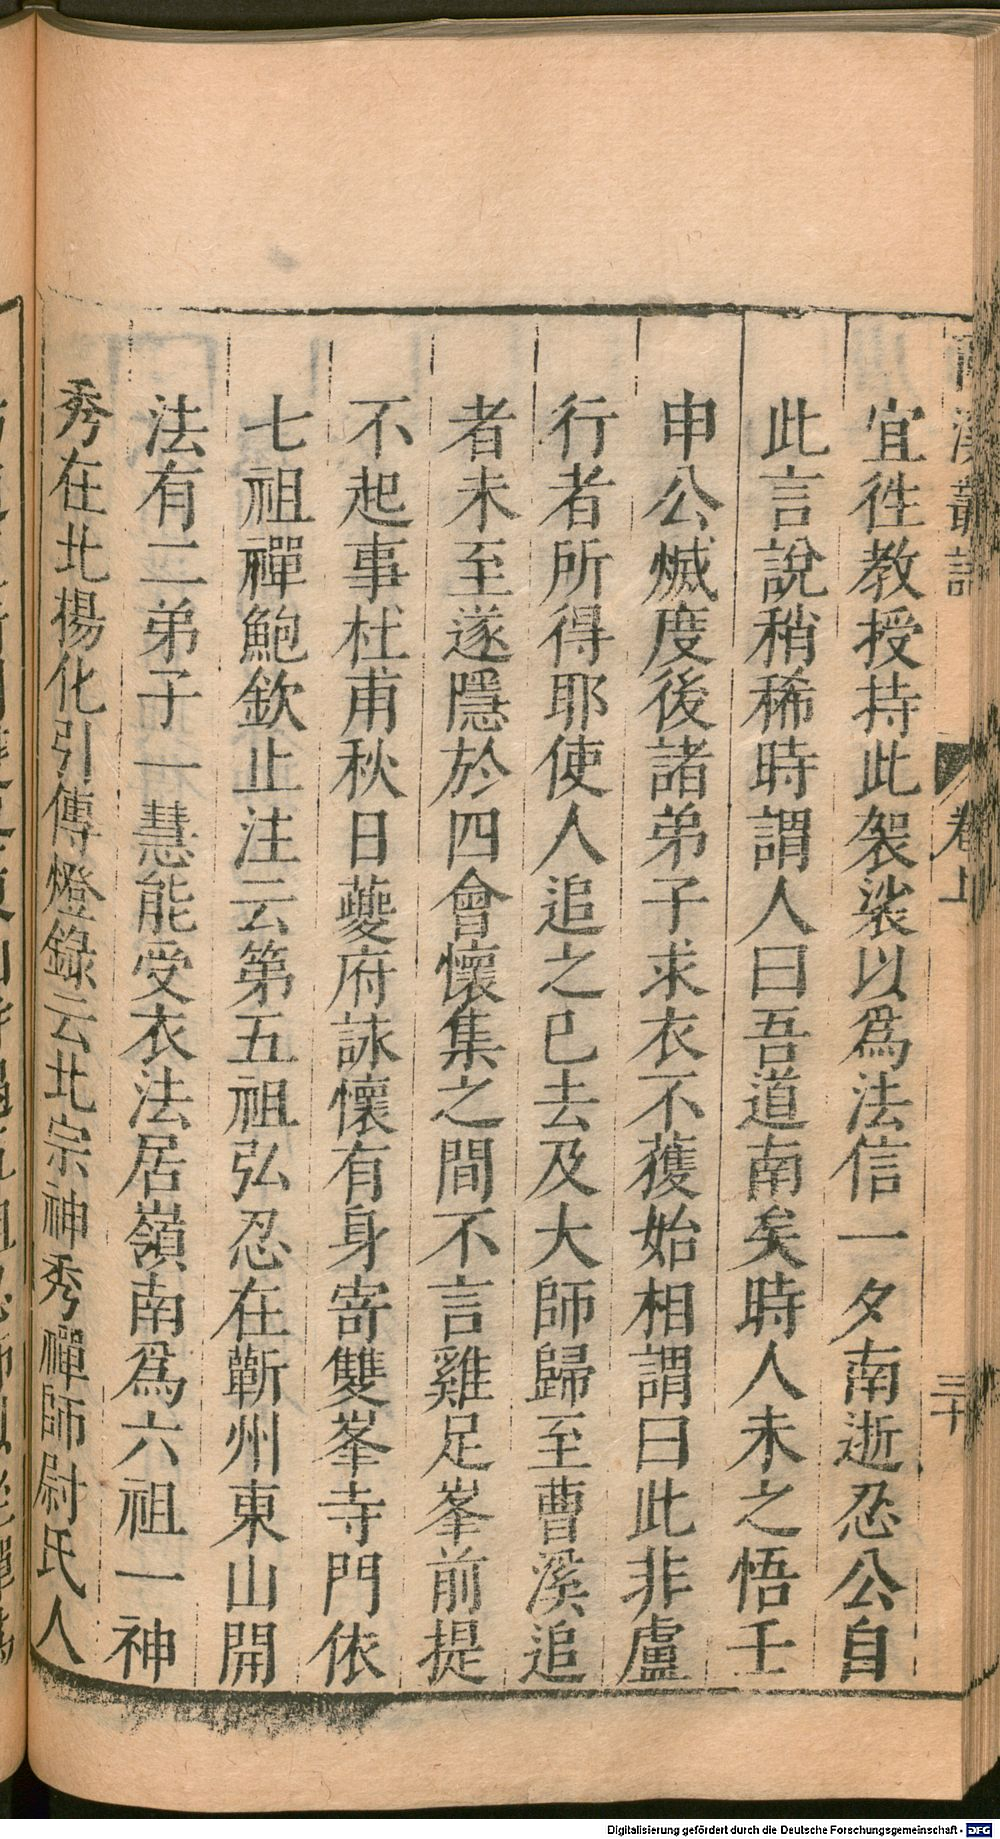 宜徃教授持此袈裟以爲法信一夕南逝忍公自
此言說稍稀時謂人曰吾道南矣時人未之悟壬
申公滅度後諸弟子求衣不獲始相謂曰此非盧
行者所得耶使人追之已去及大師歸至曹溪追
者未至遂隱於四會懷集之間不言雞足峯前提
不起事杜甫秋日夔府詠懷有身寄雙峯寺門依
七祖禪鮑欽止注云第五祖弘忍在蘄州東山開
法有二弟子一慧能受衣法居嶺南爲六祖一神
秀在北揚化引傳燈錄云北宗神秀禪師尉氏人
卷上
Digitalisierung gefördert durch die Deutsche Forschungsgemeinschaft - DFG